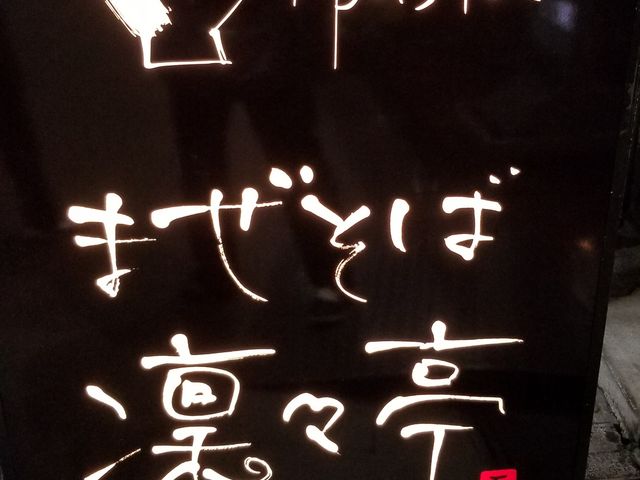 まぜそば
凛々亭